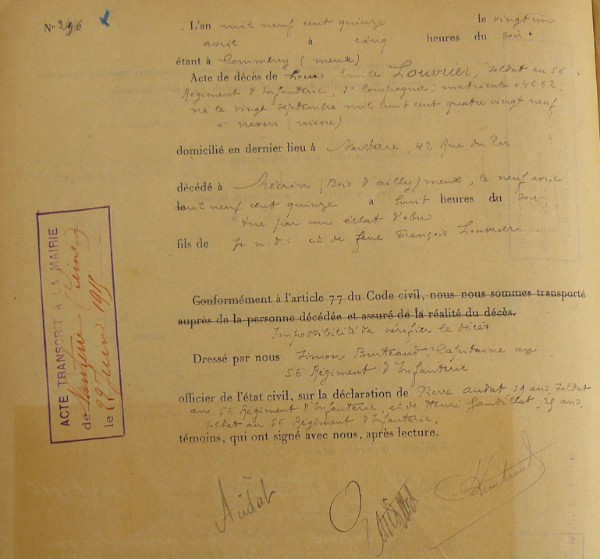 N° 296
L'an mil neuf cent quinze le vingt un
avril à cinq heures du soir
étant à Commercy (meuse)
Acte de décès de Louis Emile Louvrier, soldat au 56
Régiment d'Infanterie, 1e Compagnie; matricule 04652;
né le vingt septembre mil huit cent quatre vingt neuf
à nevers (nièvre)
domicilié en dernier lieu à Nanterre, 42 Rue du
décédé à Mécrin (Bois d'ailly) meuse, le neuf avril
mil neuf cent quinze à huit heures du soir,
"tué par un éclat d'obus
fils de p. n. d. et de feue François Louvrier
Conformément à l'article 77 du Code civil, nous nous sommes transporté
auprès de la personne décédée et assuré de la réalité du décès.
Impossibilité de vérifier le décès
Dressé par nous Simon Burthaud, Capitaine au
56 Régiment d'Infanterie
officier de l'état civil, sur la déclaration de Pierre Audat 29 ans, soldat
au 56 Régiment d'Infanterie, et de Henri Gaudillat, 29 ans,
soldat au 56 Régiment d'Infanterie,
témoins, qui ont signé avec nous, après lecture.
Audat
ACTE TRANSCRIT A LA MAIRIE
de Nanterre (Seine)
le 29 juin 1915